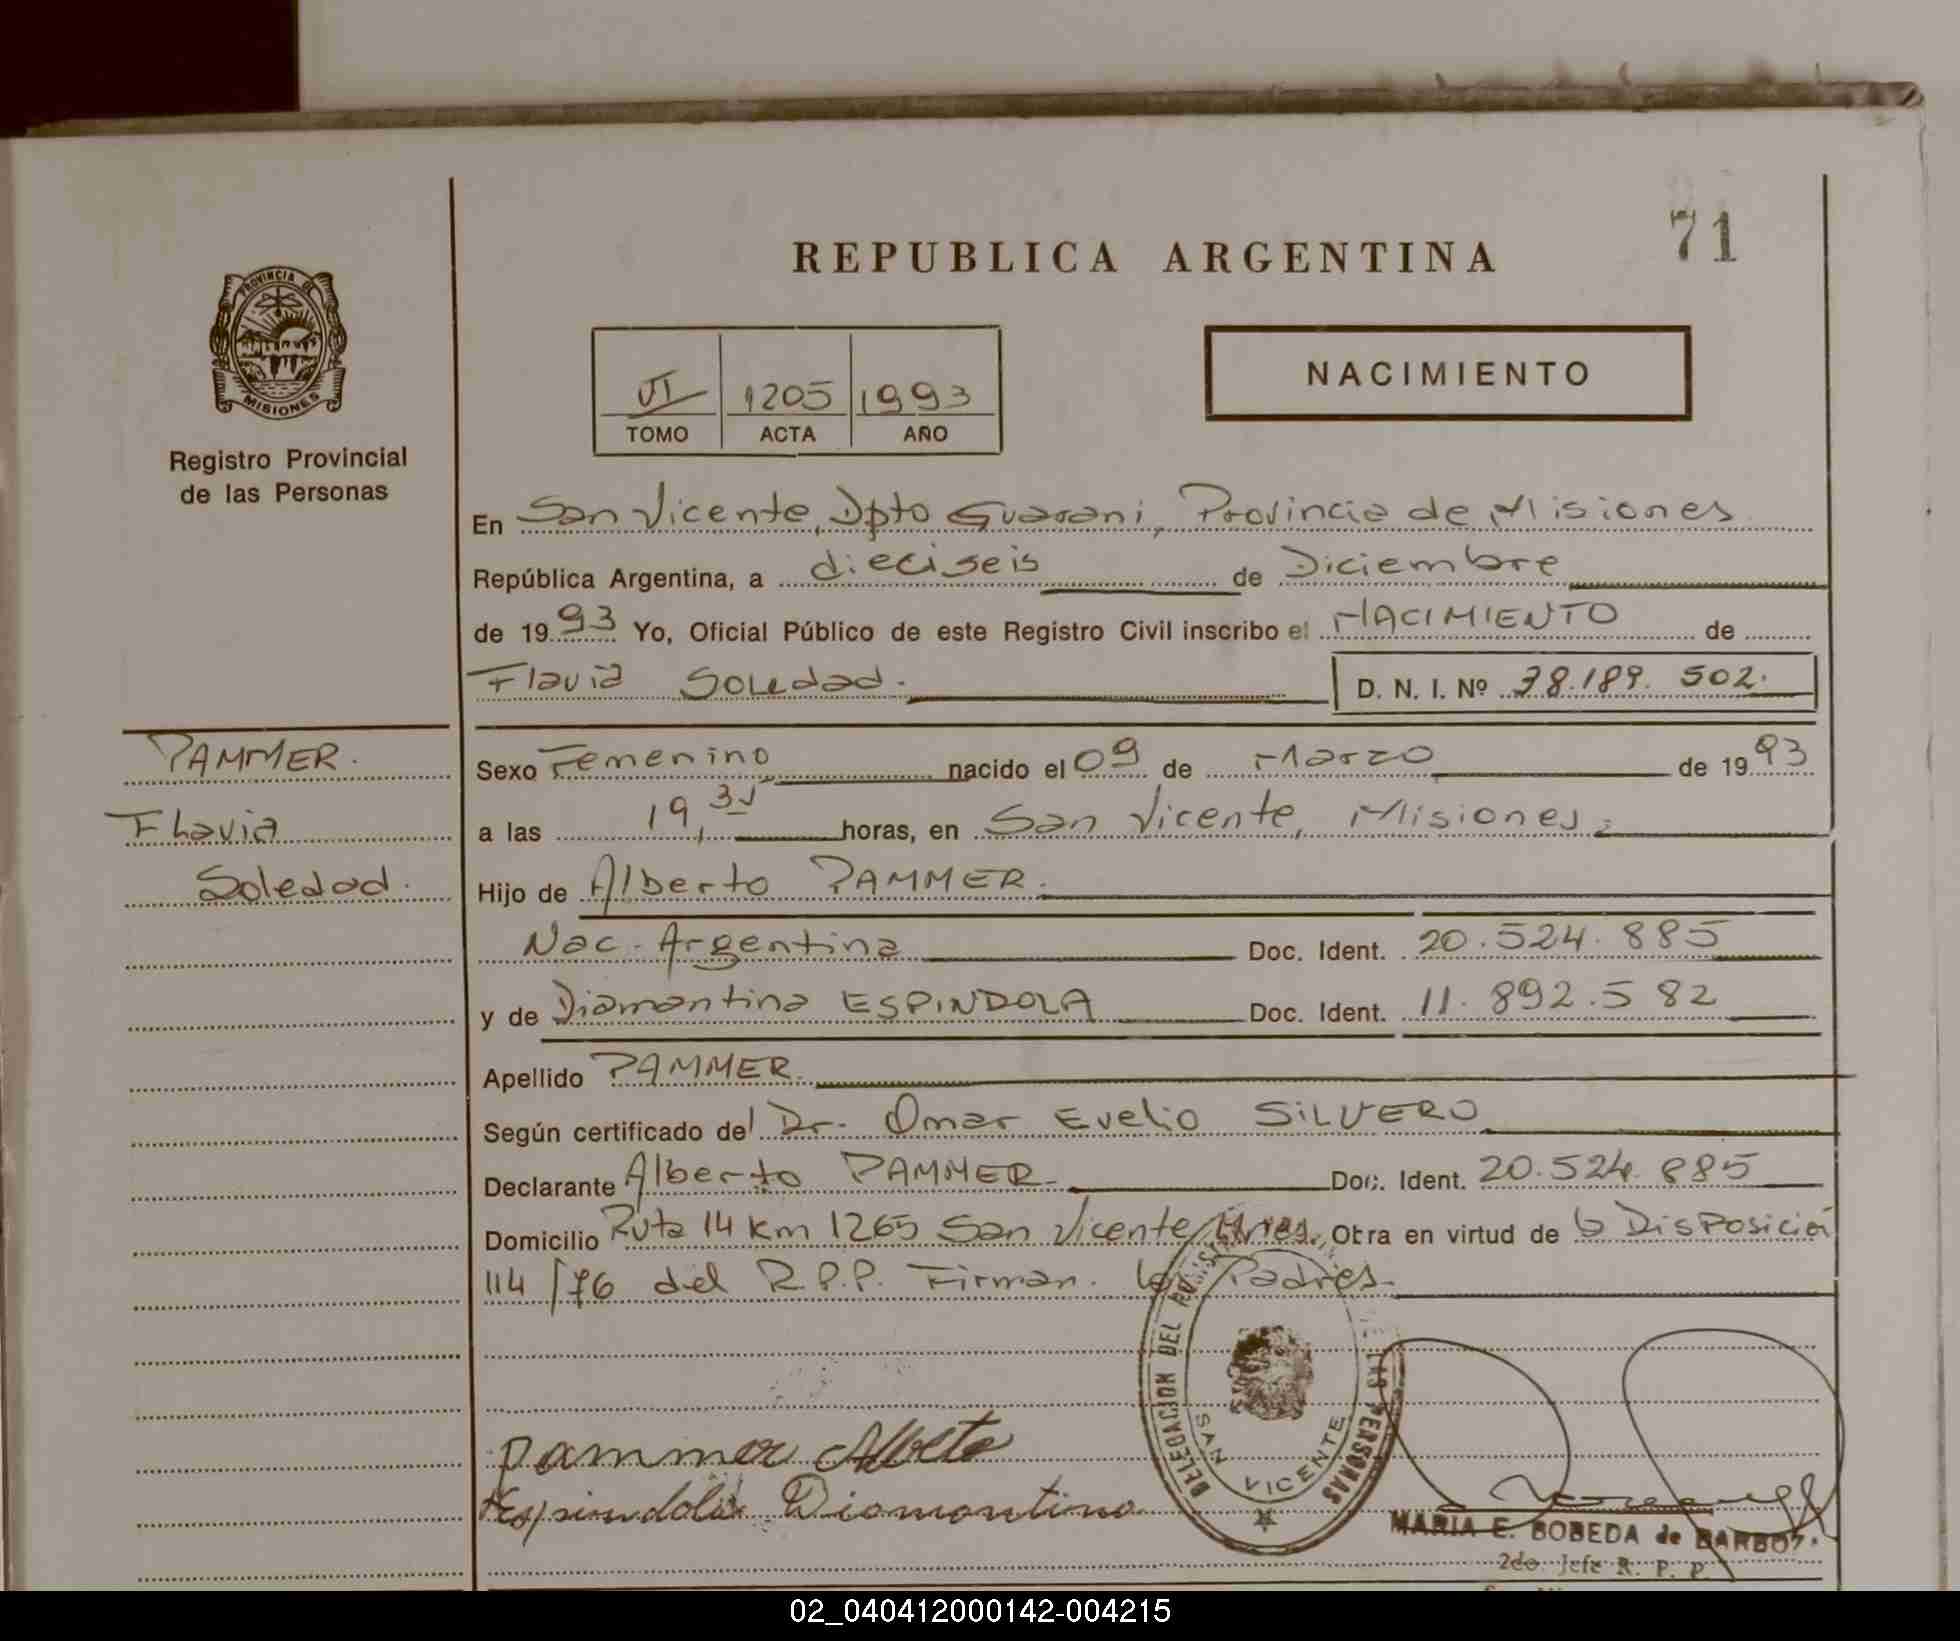 71
REPUBLICA ARGENTINA
PROVINCIA DE
MISIONES
Registro Provincial
de las Personas
VI 1205 1993
TOMO ACTA AÑO
NACIMIENTO
En San Vicente, Dpto Guarani, Provincia de Misiones
República Argentina, a dieciseis de Diciembre
de 1993 Yo, Oficial Público de este Registro Civil inscribo el NACIMIENTO de
Flavia Soledad. D. N. I. Nº 38.189.502.
PAMMER.
Flavia
Soledad.
Sexo Femenino nacido el 09 de Marzo de 1993
a las 19, horas, en San Vicente, Misiones
Hijo de Alberto PAMMER.
Nac. Argentina Doc. Ident. 20.524.885
y de Diamantina ESPINDOLA Doc. Ident. 11.892.582
Apellido PAMMER.
Según certificado del Dr. Omar Evelio SILVERO
Declarante Alberto PAMMER Doc. Ident. 20.524.885
Domicilio Ruta 14 Km 1265 San Vicente, Mnes. Otra en virtud de la Disposición
114/76 del R.P.P. Firman. los Padres.
DELEGACION DEL REGISTRO LAS PERSONAS
SAN VICENTE
Pammer Alberto
Espindola Diamantina
MARIA E. BOBEDA de BARBOZ
2do. Jefe R. P. P.
02_040412000142-004215